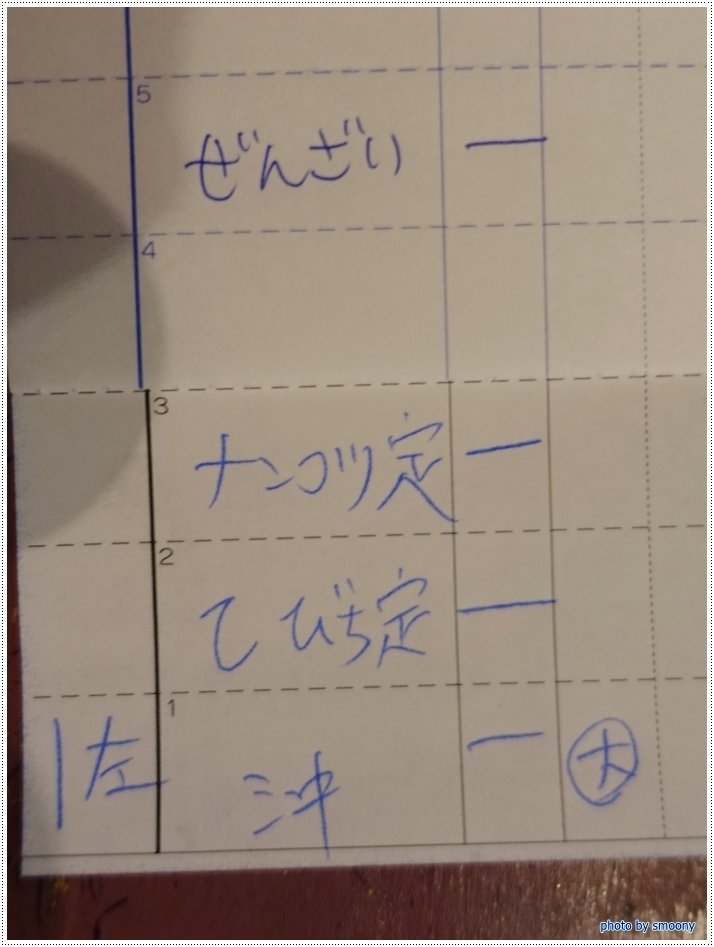 5
ぜんざい 一
4
3
ナンコツ定 一
2
てびち定 一
1
1左 沖 一 大
photo by smoony